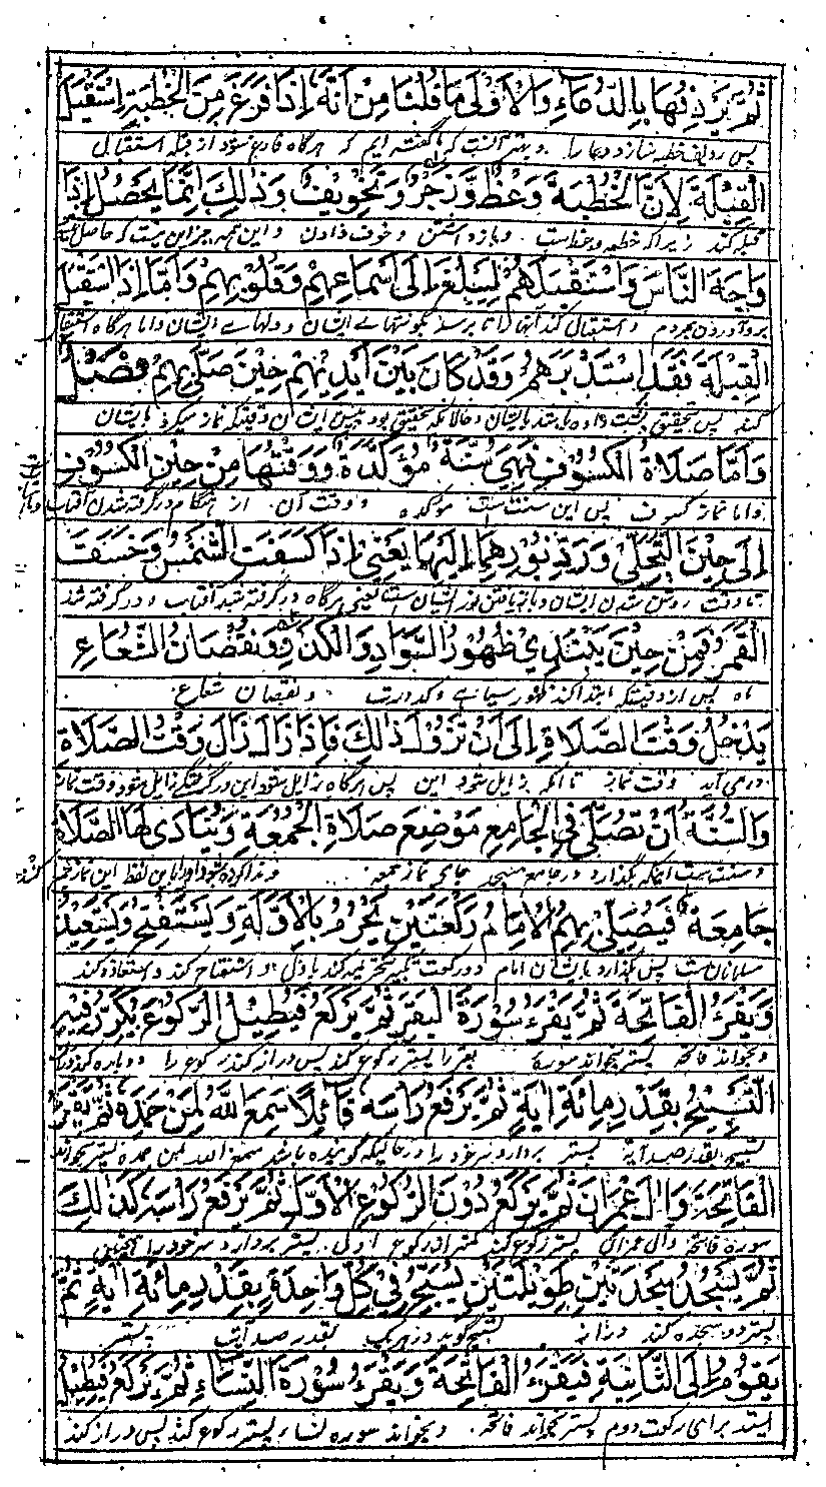 ثُمَّ يُرْدِفُهَا بِالدُّعَاءِ وَالْاَوْلٰى مَا قُلْنَا مِنْ اَنَّهٗ اِذَا فَرَغَ مِنَ الْخُطْبَةِ اسْتَقْبَلَ
پس ردیف خطبه سازد دعا را و بهتر آنست که ما گفته ایم که هرگاه فارغ شود از خطبه استقبال
الْقِبْلَةَ لِاَنَّ الْخُطْبَةَ وَعْظٌ وَّزَجْرٌ وَّتَخْوِيْفٌ وَذٰلِكَ اِنَّمَا يَحْصُلُ اِذَا
قبله کند زیرا که خطبه وعظ است و بازداشتن و خوف دادن و این همه جز این نیست که حاصل
وَاجَهَ النَّاسَ وَاسْتَقْبَلَهُمْ لِيَبْلُغَ اِلٰى اَسْمَاعِهِمْ وَقُلُوْبِهِمْ وَاَمَّا اِذَا اسْتَقْبَلَ
بروآوردن بمردم و استقبال کند آنها را تا برسد بگوشهای ایشان و دلهای ایشان و اما هرگاه استقبال
الْقِبْلَةَ فَقَدِ اسْتَدْبَرَهُمْ وَقَدْ كَانَ بَيْنَ اَيْدِيْهِمْ حِيْنَ صَلّٰى بِهِمْ فَصْلٌ
کند پس تحقیق پشت داده باشد بایشان و حالانکه تحقیق بود پیش ایشان وقتیکه نماز میکرد بایشان
وَاَمَّا صَلَاةُ الْكُسُوْفِ فَهِيَ سُنَّةٌ مُّؤَكَّدَةٌ وَوَقْتُهَا مِنْ حِيْنِ الْكُسُوْفِ
و اما نماز کسوف پس این سنت ست موکده و وقت آن از هنگام درگرفته شدن آفتاب
اِلٰى حِيْنَ التَّجَلِّيْ وَرَدِّ نُوْرِهِمَا اِلَيْهِمَا يَعْنِيْ اِذَا كَسَفَتِ الشَّمْسُ وَخَسَفَ
تا وقت روشن شدن ایشان و بازیافتن نور ایشان است یعنی هرگاه درگرفته شد آفتاب و درگرفته شد
الْقَمَرُ فَمِنْ حِيْنَ يَبْتَدِيْ ظُهُوْرُ السَّوَادِ وَالْكَدَرِ وَنُقْصَانُ الشُّعَاعِ
ماه پس از وقتیکه ابتدا کند ظهور سیاهی و کدورت و نقصان شعاع
يَدْخُلُ وَقْتُ الصَّلَاةِ اِلٰى اَنْ تَزُوْلَ ذٰلِكَ فَاِذَا زَالَ زَالَ وَقْتُ الصَّلَاةِ
در می آید وقت نماز تا آنکه زایل شود این پس هرگاه زایل شود این درگرفتگی زایل شود وقت نماز
وَالسُّنَّةُ اَنْ تُصَلّٰى فِي الْجَامِعِ مَوْضِعَ صَلَاةِ الْجُمُعَةِ وَيُنَادٰى لَهَا الصَّلَاةُ
و سنت ست اینکه بگذارد در جامع مسجد جای نماز جمعه و ندا کرده شود او را باین لفظ این نماز
جَامِعَةٌ فَيُصَلِّيْ بِهِمُ الْاِمَامُ رَكْعَتَيْنِ يُحْرِمُ بِالْاَوَّلَةِ وَيَسْتَفْتِحُ وَيَسْتَعِيْذُ
مسلمانان ست پس بگذارد بایشان امام دو رکعت تکبیر تحریمه کند باولی و استفتاح کند و استعاذه کند
وَيَقْرَءُ الْفَاتِحَةَ ثُمَّ يَقْرَءُ سُوْرَةَ الْبَقَرِ ثُمَّ يَرْكَعُ فَيُطِيْلُ الرُّكُوْعَ يُكَرِّرُ فِيْهِ
و بخواند فاتحه پستر بخواند سوره بقر را پستر رکوع کند پس دراز کند رکوع را دوباره کند در آن
التَّسْبِيْحَ بِقَدْرِ مِائَةِ اٰيَةٍ ثُمَّ يَرْفَعُ رَأْسَهٗ قَآئِلًا سَمِعَ اللّٰهُ لِمَنْ حَمِدَهٗ ثُمَّ يَقْرَءُ
تسبیح بقدر صد آیة پستر بردارد سر خود را در حالیکه گوینده باشد سمع الله لمن حمده پستر بخواند
الْفَاتِحَةَ وَاٰلَ عِمْرَانَ ثُمَّ يَرْكَعُ دُوْنَ الرُّكُوْعِ الْاَوَّلِ ثُمَّ يَرْفَعُ رَاْسَهٗ كَذٰلِكَ
سوره فاتحه و آل عمران پستر رکوع کند کمتر از رکوع اولی پستر بردارد سر خود را همچنین
ثُمَّ يَسْجُدُ سَجْدَتَيْنِ طَوِيْلَتَيْنِ يُسَبِّحُ فِيْ كُلِّ وَاحِدَةٍ بِقَدْرِ مِائَةِ اٰيَةٍ ثُمَّ
پستر دو سجده کند دراز تسبیح گوید در هر یک بقدر صد آیت پستر
يَقُوْمُ اِلَى الثَّانِيَةِ فَيَقْرَءُ الْفَاتِحَةَ وَيَقْرَءُ سُوْرَةَ النِّسَاءِ ثُمَّ يَرْكَعُ فَيُطِيْلُ
ایستد برای رکعت دوم پستر بخواند فاتحه و بخواند سوره نساء پستر رکوع کند پس دراز کند